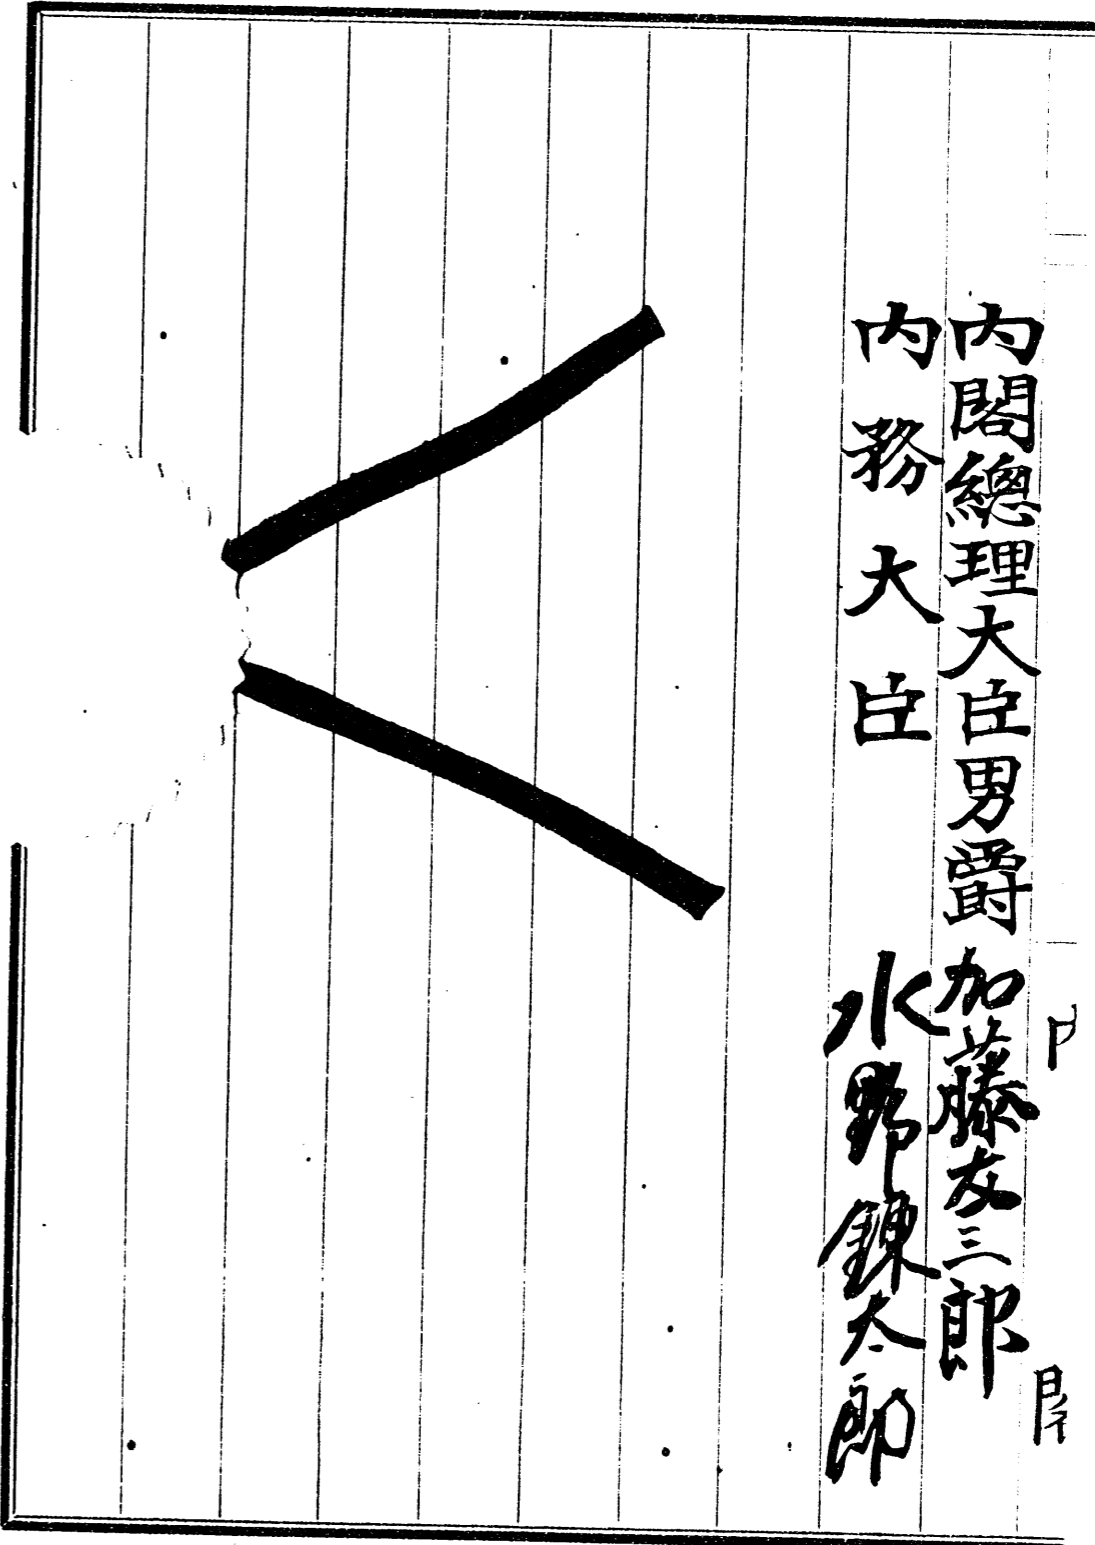 內閣總理大臣男爵加藤友三郎
內務大臣 水野錬太郎